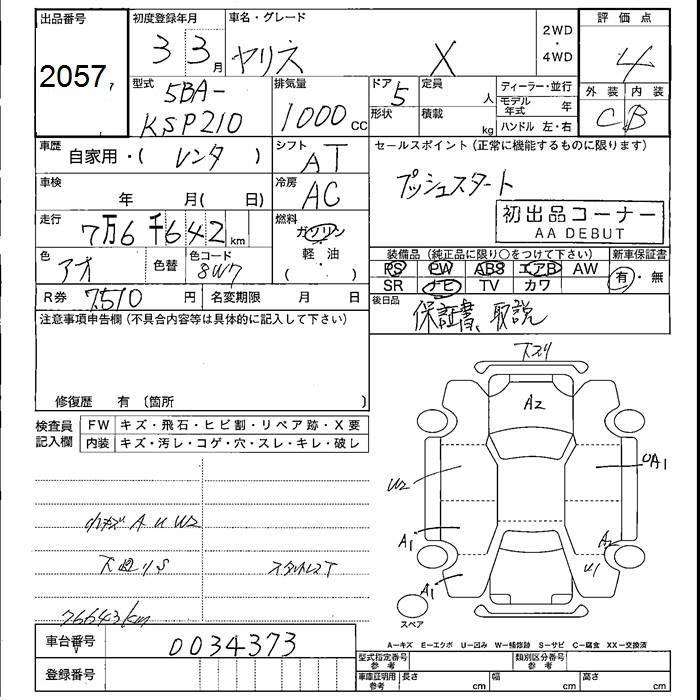 出品番号 初度登録年月 車名・グレード 2WD・4WD 評価点
2057 3 3月 ヤリス X 4
型式 5BA-KSP210 排気量 1000cc ドア 5 形状 定員 人 積載 kg
ディーラー・並行
モデル年式 年
ハンドル 左・右
外装 内装
C B
車歴 自家用・( レンタ ) シフト AT セールスポイント(正常に機能するものに限ります)
車検 年 月( 日) 冷房 AC プッシュスタート
初出品コーナー
AA DEBUT
走行 7万6千642km 燃料 ガソリン 軽・油 ( ・ )
色 アオ 色替 色コード 8W7
装備品(純正品に限り○をつけて下さい) 新車保証書
PS PW ABS エアB AW 有・無
SR ナビ TV カワ
R券 7510円 名変期限 月 日 後日品 保証書、取説
注意事項申告欄(不具合内容等は具体的に記入して下さい)
修復歴 有(箇所 )
検査員記入欄 FW キズ・飛石・ヒビ割・リペア跡・X要
内装 キズ・汚レ・コゲ・穴・スレ・キレ・破レ
下スリ
A2
W2
UA1
A1
A2
U1
A1
スペア
小キズ A U W2
下廻りS
76643km
A−キズ E−エクボ U−凹み W−補修跡 S−サビ C−腐食 XX−交換済
車台番号 0034373
登録番号
型式指定番号 参考 類別区分番号 参考
車庫証明用 参考 長さ cm 幅 cm 高さ cm